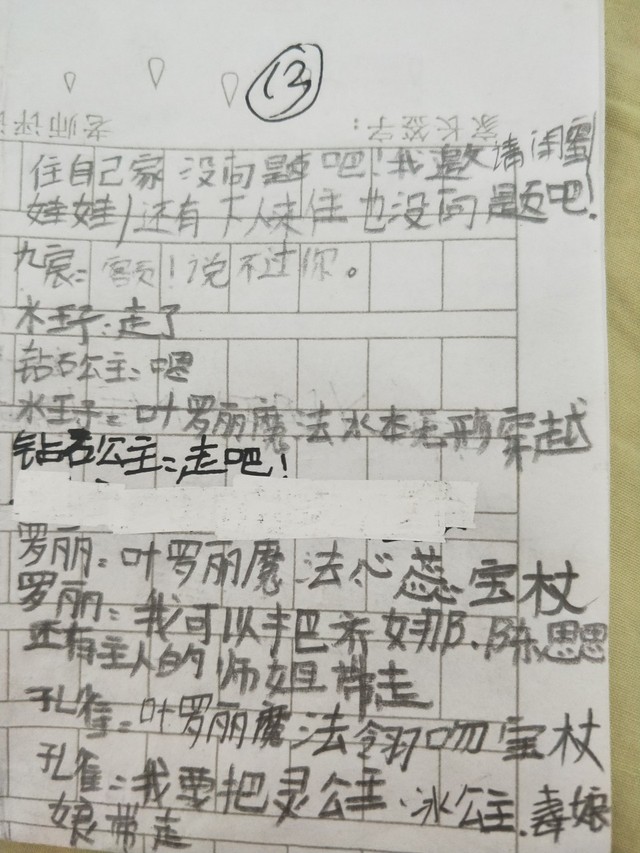 13
家长签字：
老师评语
住自己家没问题吧！我邀请闺蜜
娃娃，还有下人来住也没问题吧！
九宸：额！说不过你。
水王子：走了
钻石公主：嗯
水王子：叶罗丽魔法水本无形穿越
钻石公主：走吧！
罗丽：叶罗丽魔法心蕊宝杖
罗丽：我可以把齐娜、陈思思
还有主人的师姐带走
孔雀：叶罗丽魔法翎吻宝杖
孔雀：我要把灵公主、冰公主、毒娘
娘带走